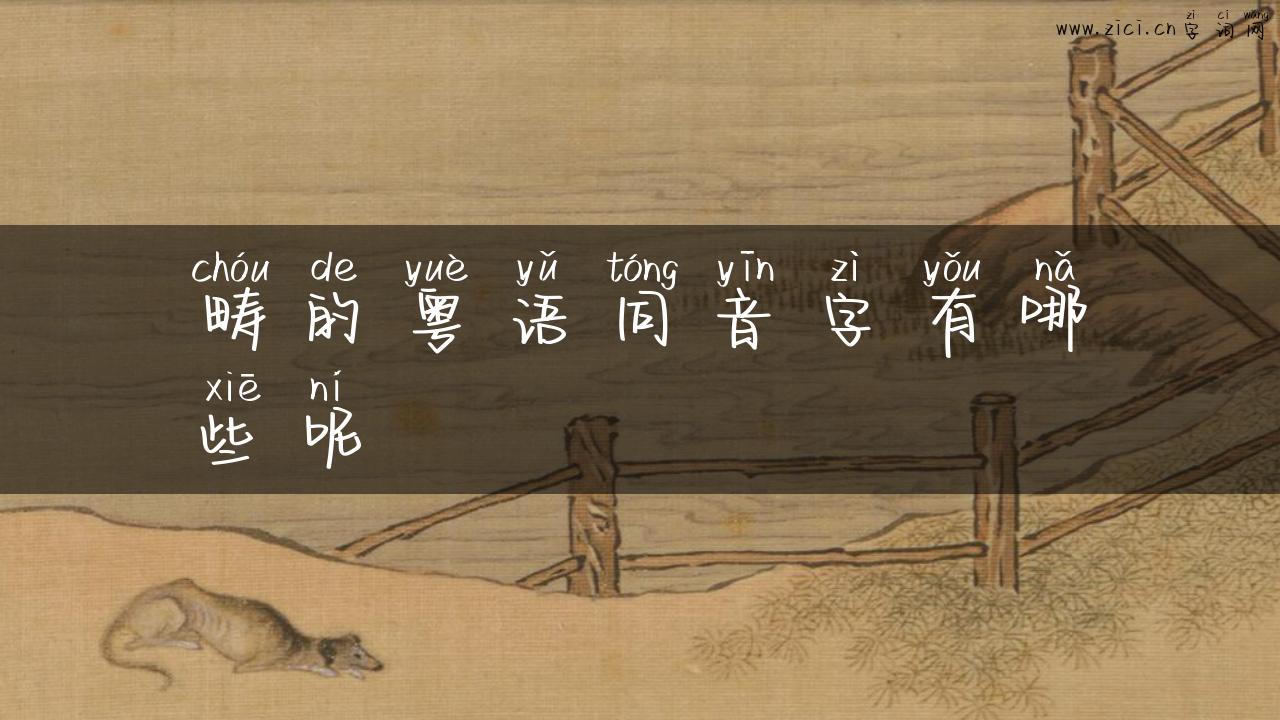 zì cí wǎng
www.zici.cn 字词网
chóu de yuè yǔ tóng yīn zì yǒu nǎ
畴的粤语同音字有哪
xiē ní
些呢